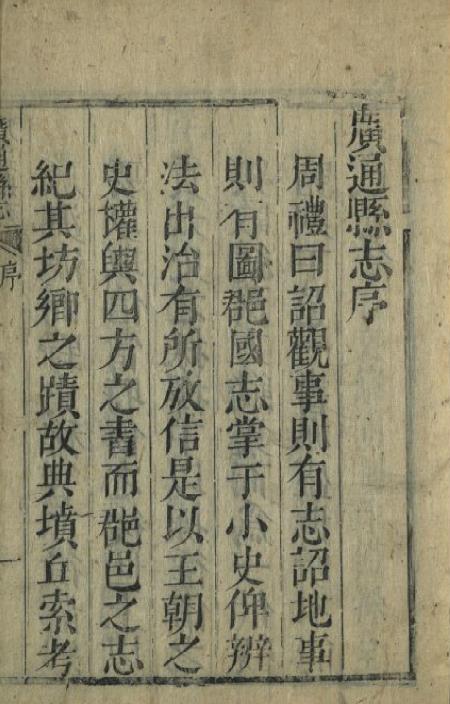 廣通縣志序
周禮曰詔觀事則有志詔地事
則有圖郡國志掌于小史俾辨
法出治有所放信是以王朝之
史權輿四方之書而郡邑之志
紀其坊鄉之蹟故典墳丘索考
廣通縣志
序